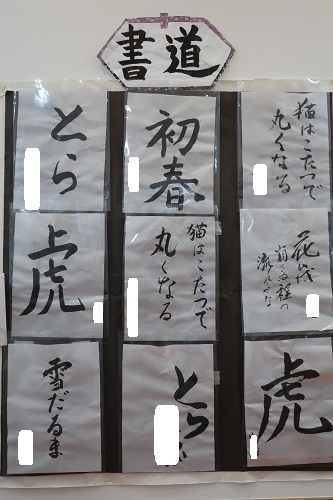 書道
とら
初春
猫はこたつで
丸くなる
虎
猫はこたつで
丸くなる
花筏
流れかな
雪だるま
とら
虎